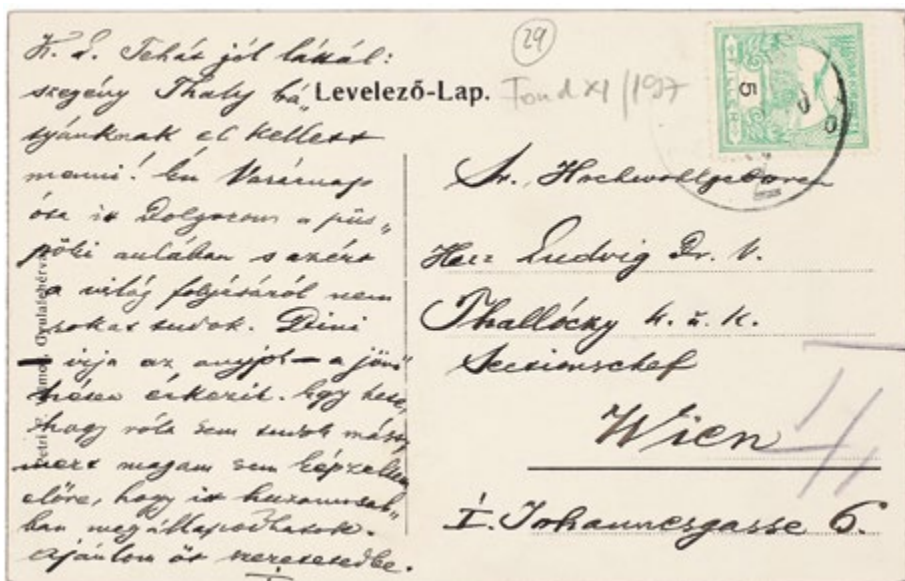 K. L. Tehát jól láttál:
szegény Thaly bá„
tyánknak el kellett
menni! Én Vasárnap
óta itt dolgozom a püs„
pöki aulában s azért
a világ folyásáról nem
sokat tudok. Dini
— írja az anyjok — a jövő
héten érkezik. Úgy
hogy róla sem tudok mást,
mert magam sem képzeltem
előre, hogy itt huzamosab„
ban megállapodhatok.
Ajánlom őt szeretetedbe.
Levelező-Lap.
29
Fond XI/1927
5
Sr. Hochwohlgeboren
Herr Ludwig Dr. V.
Thallóczy k. u. k.
Sectionschef
Wien
I. Johannesgasse 6.
Gyulafehérvár